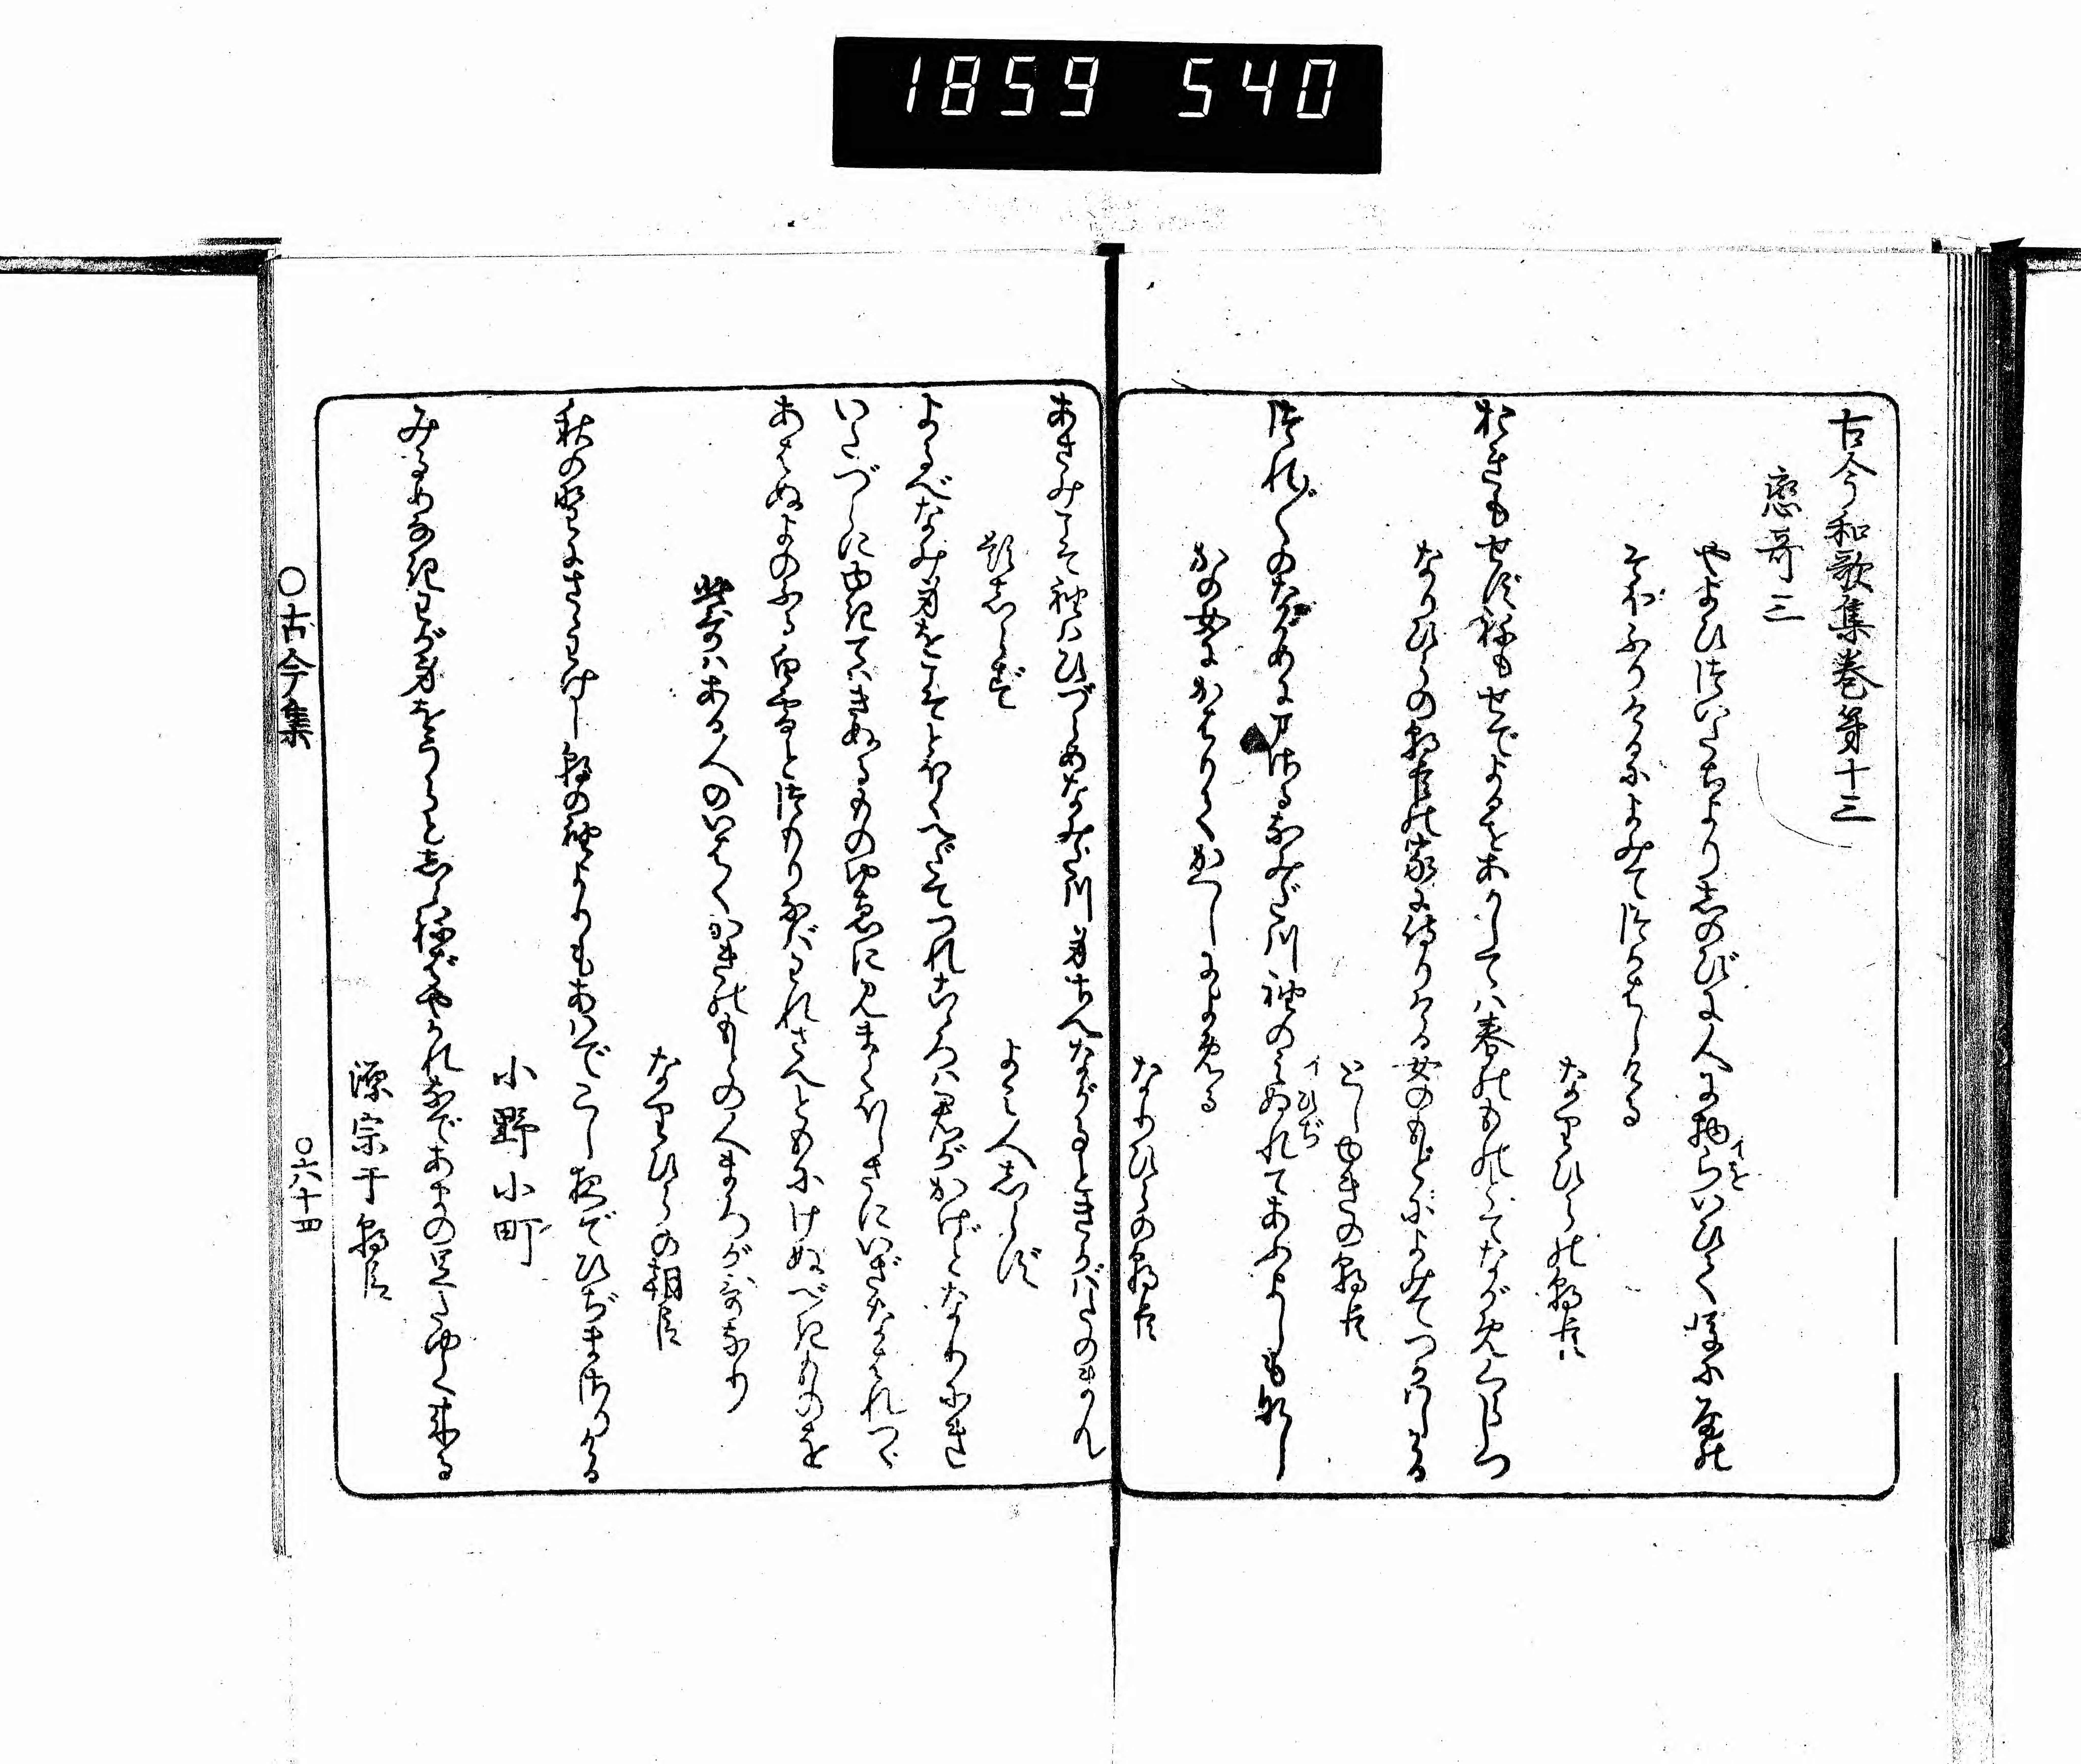 1859 540
古今和歌集巻第十三
戀哥三
やよひのついたちよりしのびに人に物らいひてのちに雨の
イを
そほふりけるによみてつかはしける
なりひらの朝臣
おきもせずねもせでよるをあかしては春のものとてながめくらしつ
なりひらの朝臣の家に侍りける女のもとによみてつかはしける
としゆきの朝臣
つれ〴〵のながめにまさるなみだ川袖のみぬれてあふよしもなし
イひぢ
かの女にかはりてかへしによめる
なりひらの朝臣
あさみこそ袖はひづらめなみだ川身さへながるときかばたのまん
題しらず
よみ人しらず
よるべなみ身をこそとほくへだてつれこゝろは君がかげとなりにき
いたづらにゆきてはきぬるものゆゑに見まくほしさにいざなはれつゝ
あはぬよのふる白雪とつもりなばわれさへともにけぬべきものを
此哥はある人のいはくかきのもとの人まろが哥なり
なりひらの朝臣
秋の野にさゝわけし朝の袖よりもあはでこし夜ぞひぢまさりける
小野小町
みるめなきわが身をうらとしらねばやかれなであまの足たゆく来る
源宗于朝臣
○古今集
○六十四